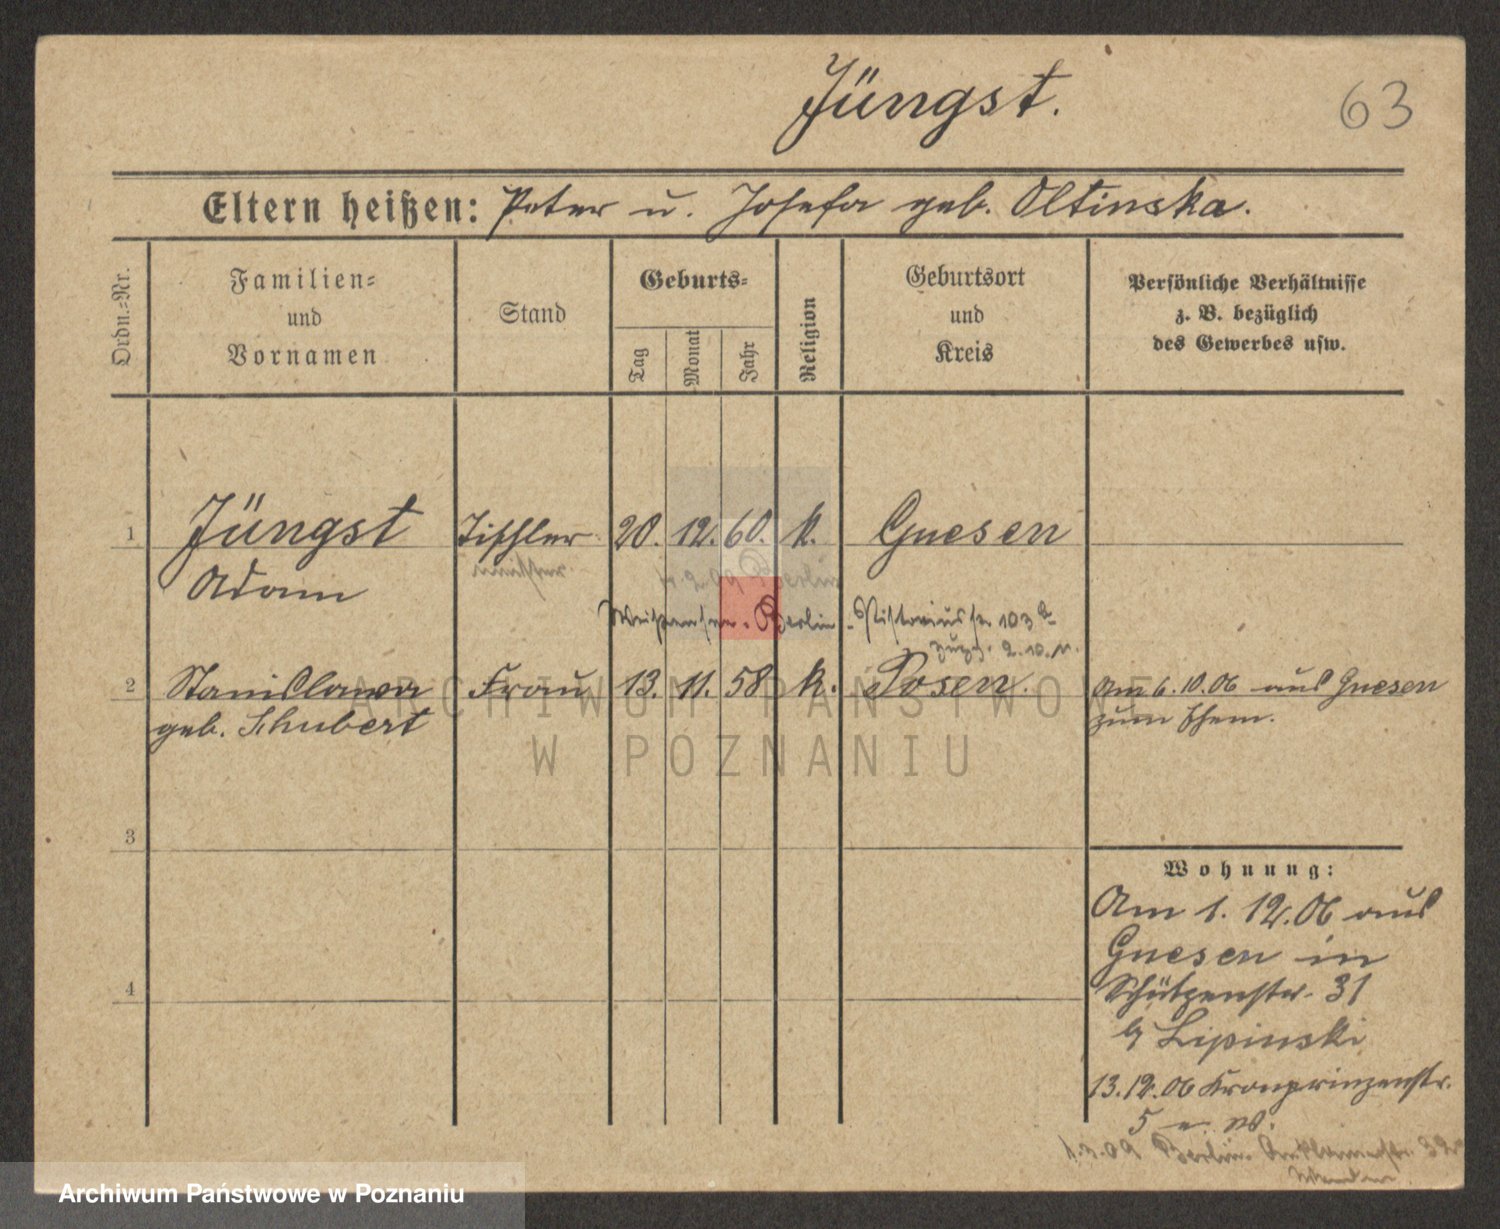 Jüngst.
63
Eltern heißen: Peter u. Josefa geb. Oltinska.
Ordn.-Nr.
Familien-
und
Vornamen
Stand
Geburts-
Tag
Monat
Jahr
Religion
Geburtsort
und
Kreis
Persönliche Verhältnisse
z. B. bezüglich
des Gewerbes usw.
1 Jüngst Tischler 20. 12. 60. k. Gnesen
Adam
Weißensee-Berlin-Pistoriusstr. 103
2. 10. 11.
2 Stanislawa Frau 13. 11. 58 k. Posen. Am 6.10.06 aus Gnesen
geb. Schubert zum Ehem.
ARCHIWUM PAŃSTWOWE
W POZNANIU
3
Wohnung:
Am 1. 12. 06 aus
Gnesen in
4
Schützenstr. 31
b/ Lipinski
13.12.06 Kronprinzenstr.
5
1.3.09 Berlin
Archiwum Państwowe w Poznaniu